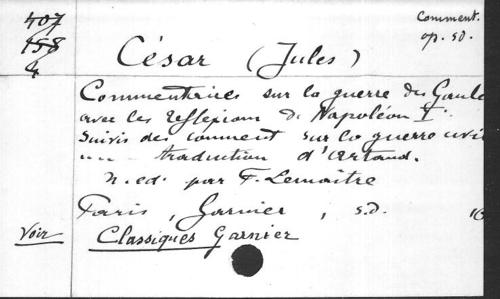 407
158
4
Comment.
op. sd.
César (Jules)
Commentaires sur la guerre des Gaule
avec les réflexions de Napoléon I
suivis des comment sur la guerre civi
traduction d'Artaud.
n. ed. par F. Lemaître
Paris, Garnier, s.d. 16
Voir Classiques Garnier